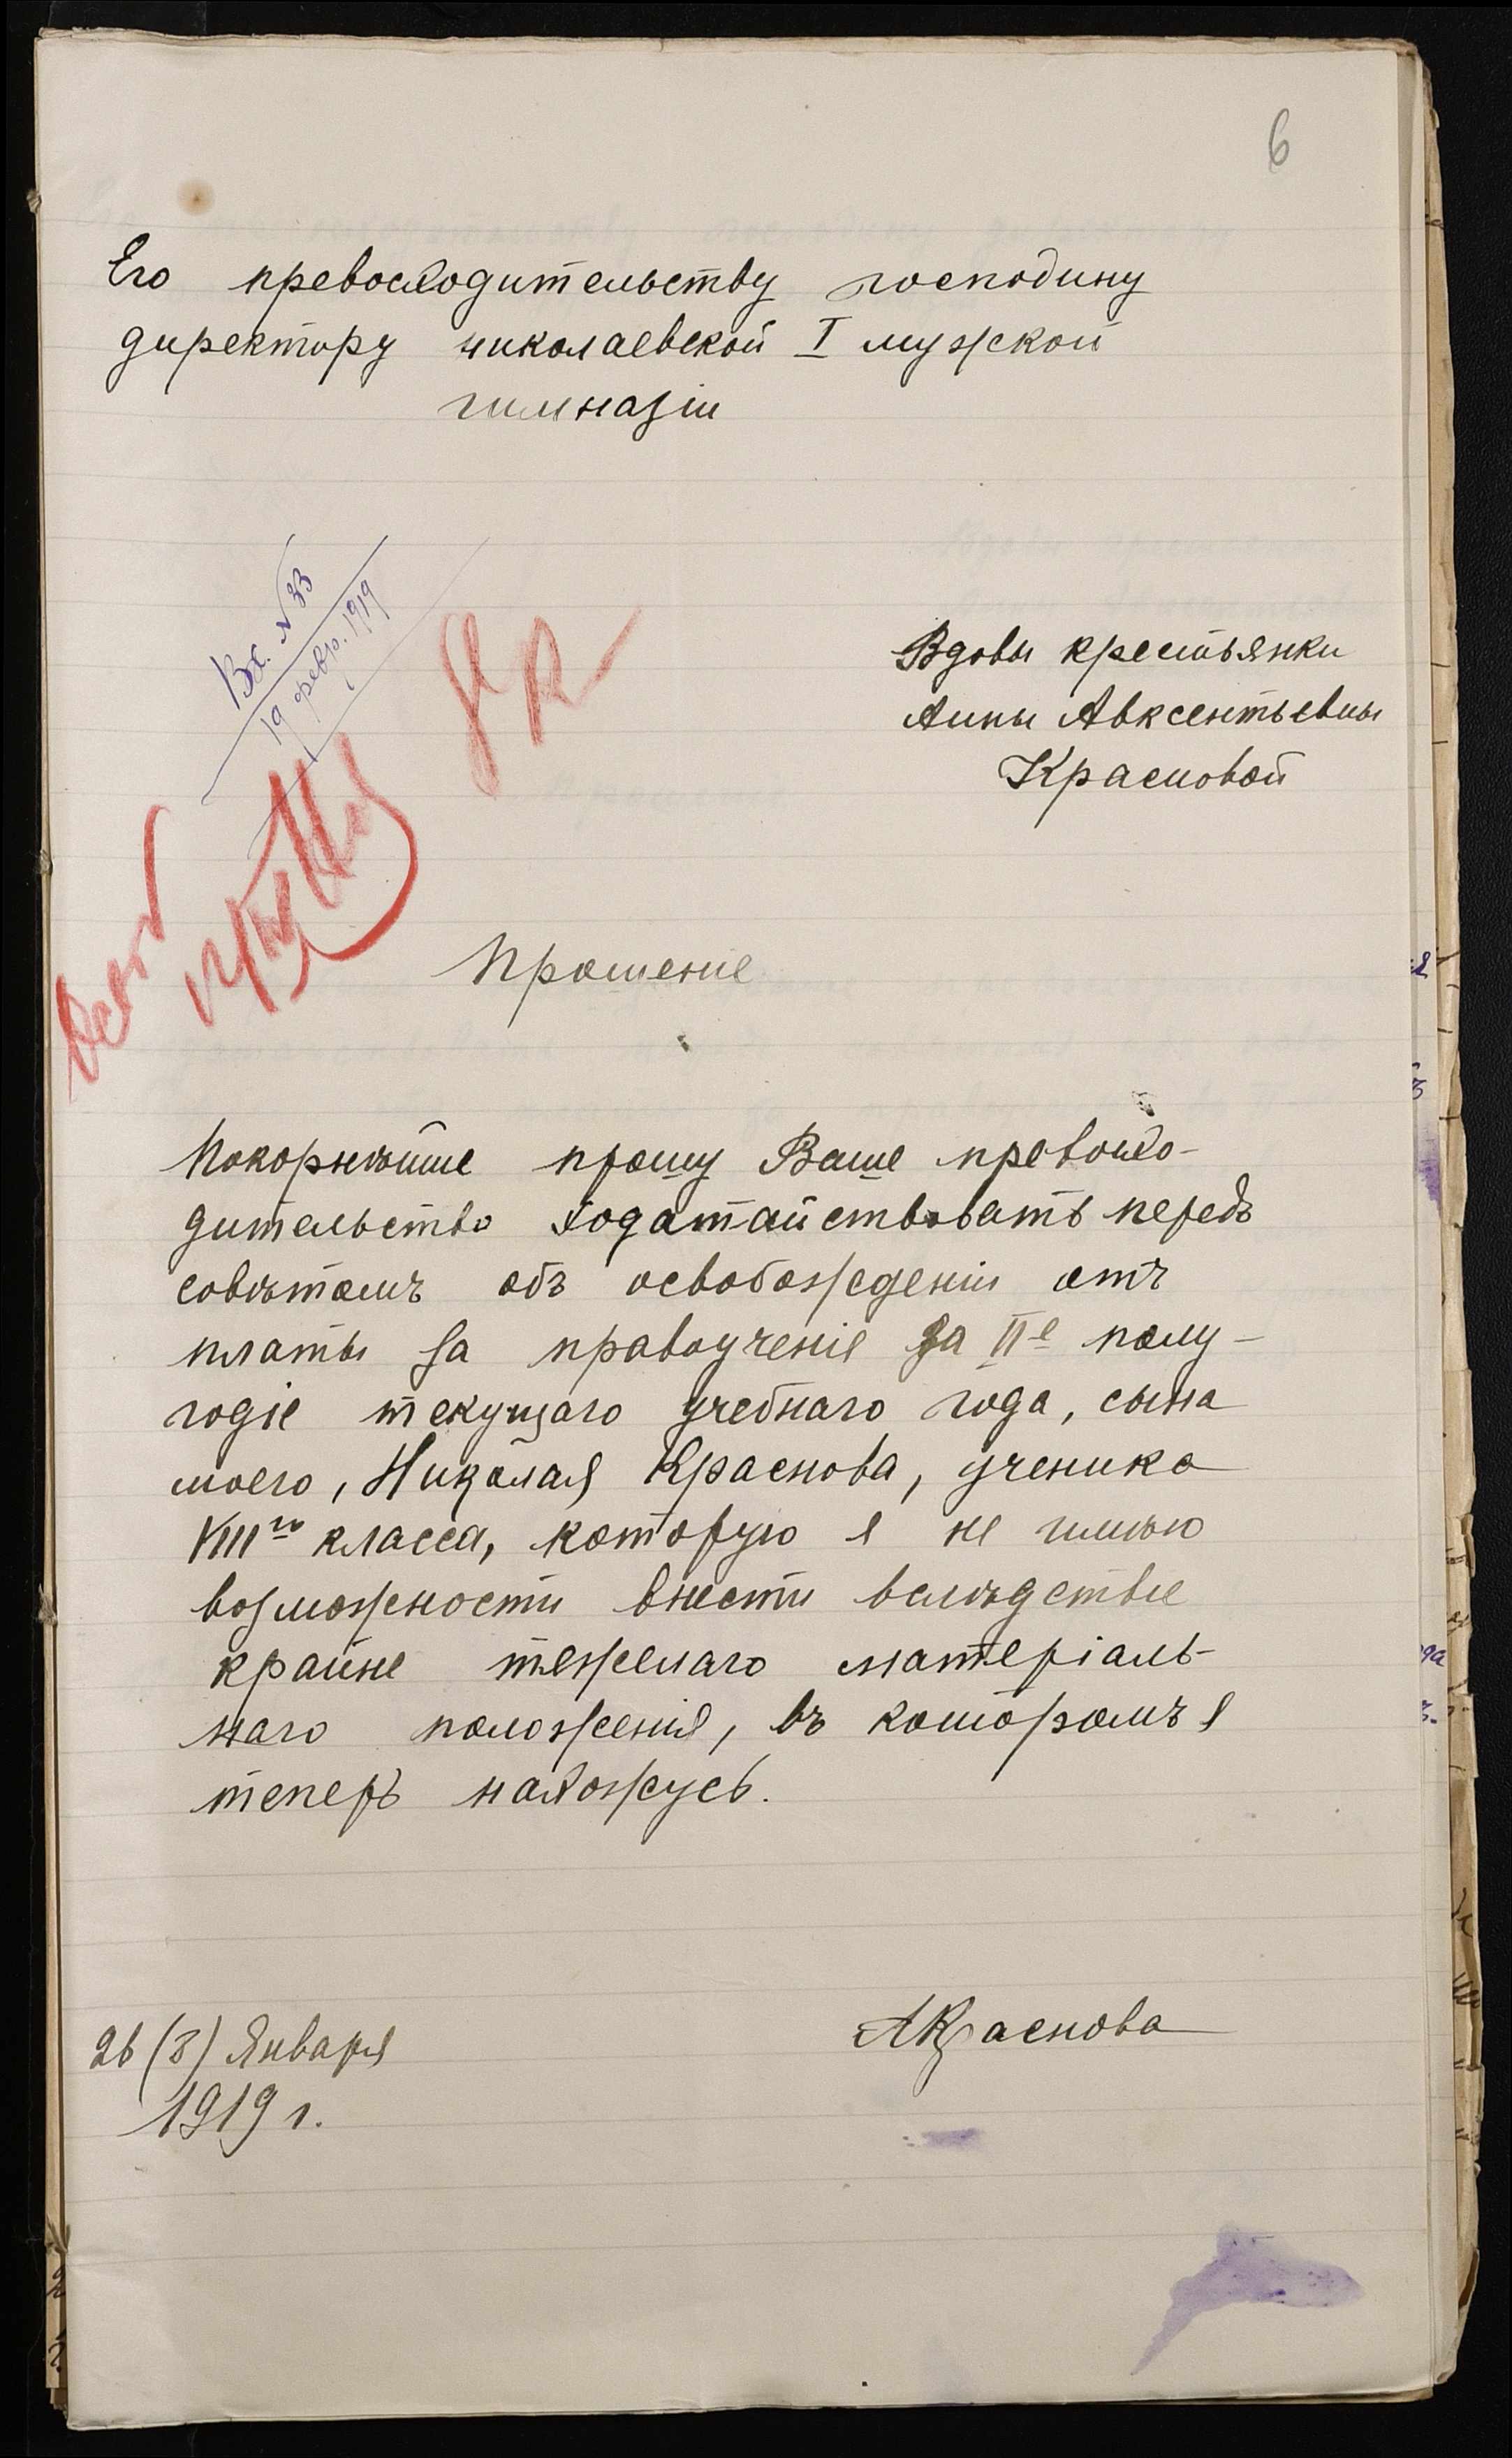 6
Его превосходительству господину
директору николаевской I мужской
гимназіи
Вх. № 33
19 февр. 1919
Вдовы крестьянки
Анны Авксентьевны
Красновой
Прошеніе
Покорнѣйше прошу Ваше превосхо-
дительство ходатайствовать передъ
совѣтомъ объ освобожденіи отъ
платы за правоученіе за II-е полу-
годіе текущаго учебнаго года, сына
моего, Николая Краснова, ученика
VIII го класса, которую я не имѣю
возможности внести вслѣдствіе
крайне тяжелаго матеріаль-
наго положенія, въ которомъ я
теперь нахожусь.
АКраснова
26 (8) Января
1919 г.